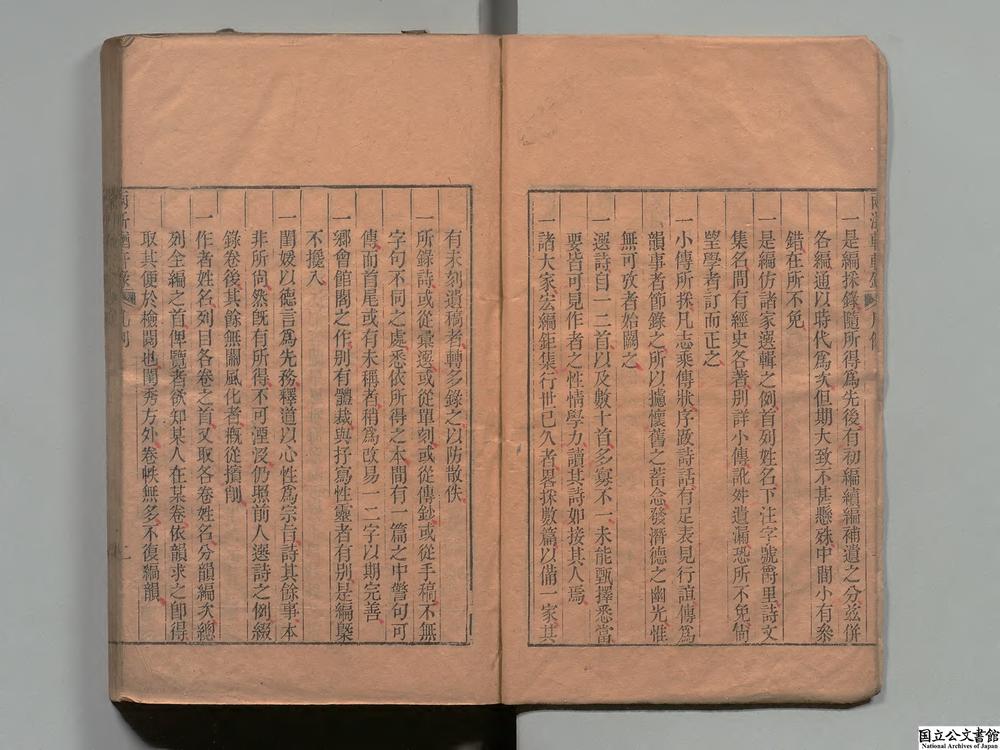 一是編採錄隨所得爲先後有初編續編補遺之分茲併
各編通以時代爲次但期大致不甚懸殊中間小有參
錯在所不免
一是編仿諸家選輯之例首列姓名下注字號爵里詩文
集名間有經史各著別詳小傳訛舛遺漏恐所不免尙
望學者訂而正之
一小傳所採凡志乘傳狀序跋詩話有足表見行誼傳爲
韻事者節錄之所以攄懷舊之蓄念發潛德之幽光惟
無可攷者始闕之
一選詩自一二首以及數十首多寡不一未能甄擇悉當
要皆可見作者之性情學力讀其詩如接其人焉
一諸大家宏編鉅集行世已久者畧採數篇以備一家其
有未刻遺稿者轉多錄之以防散佚
一所錄詩或從彙選或從單刻或從傳鈔或從手稿不無
字句不同之處悉依所得之本間有一篇之中警句可
傳而首尾或有未稱者稍爲改易一二字以期完善
一鄉會館閣之作別有體裁與抒寫性靈者有別是編槩
不攔入
一閨媛以德言爲先務釋道以心性爲宗旨詩其餘事本
非所尙然旣有所得不可湮沒仍照前人選詩之例綴
錄卷後其餘無關風化者槪從擯削
一作者姓名列目各卷之首又取各卷姓名分韻編次總
列全編之首俾覽者欲知某人在某卷依韻求之卽得
取其便於檢閱也閨秀方外卷帙無多不復編韻
二
国立公文書館
National Archives of Japan